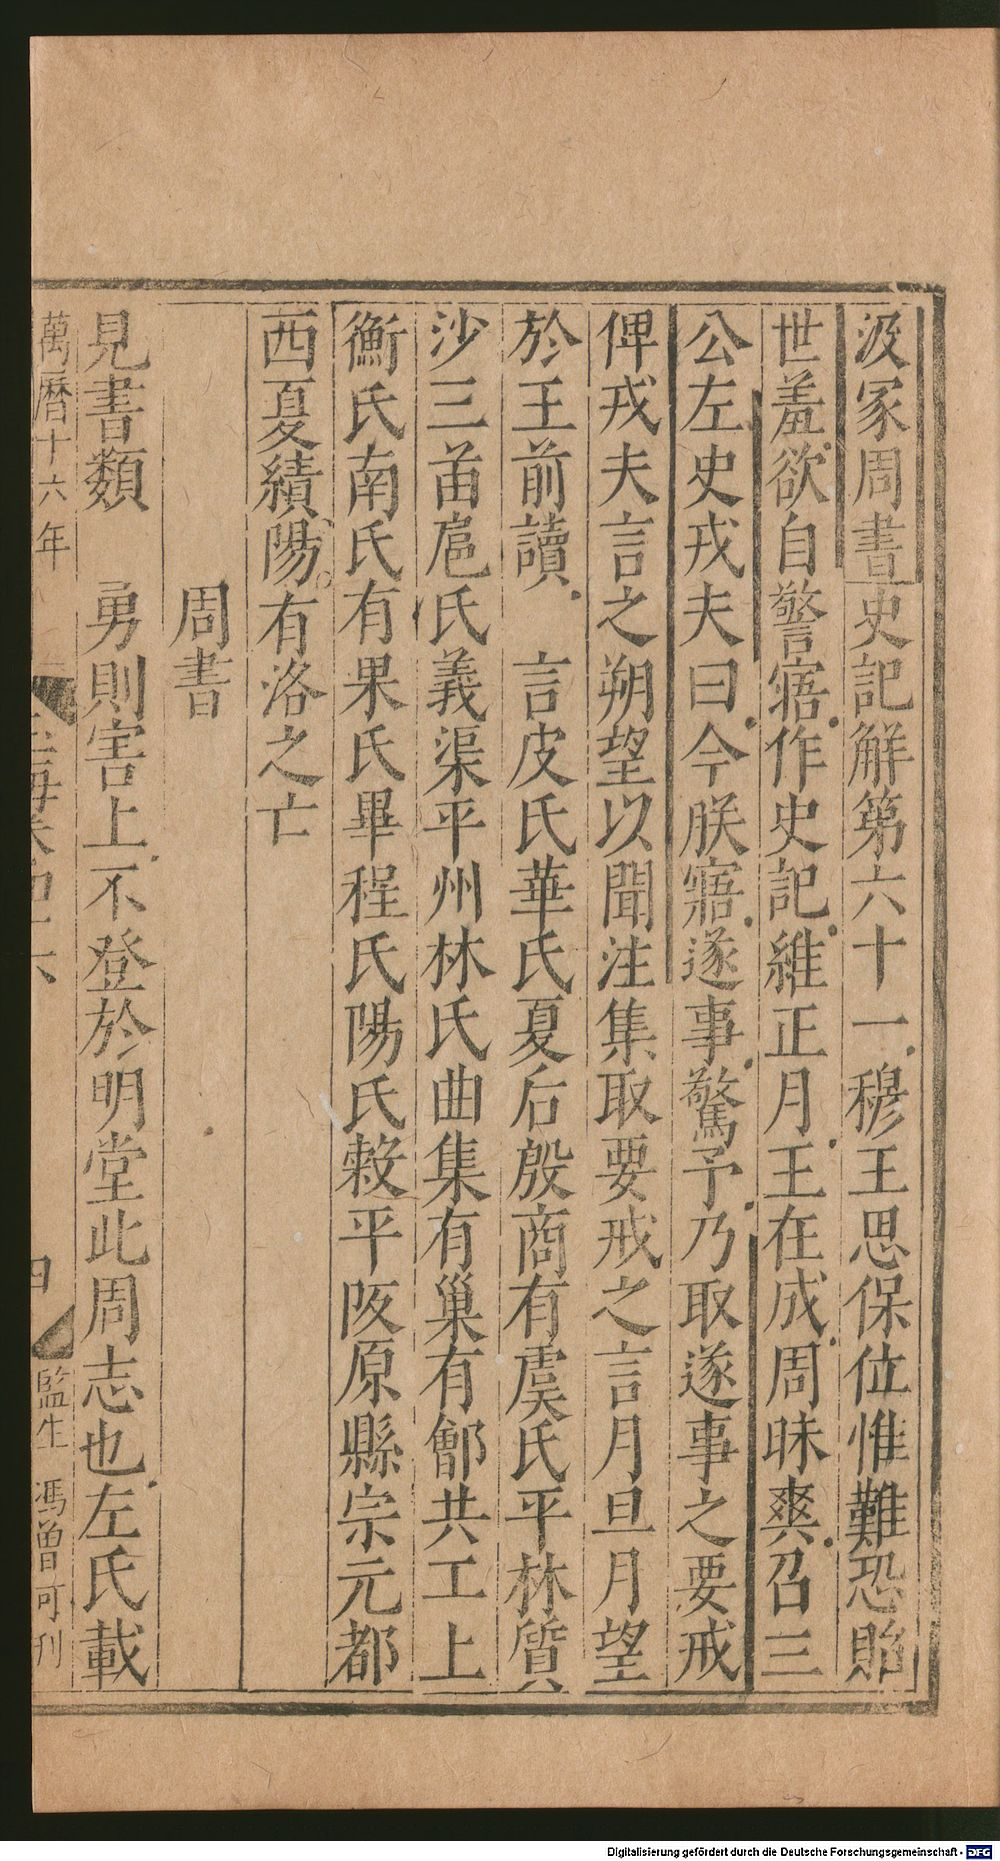 汲冢周書史記解第六十一穆王思保位惟難恐貽
世羞欲自警寤作史記維正月王在成周昧爽召三
公左史戎夫曰今朕寤遂事驚予乃取遂事之要戒
俾戎夫言之朔望以聞注集取要戒之言月旦月望
於王前讀 言皮氏華氏夏后殷商有虞氏平林質
沙三苗扈氏義渠平州林氏曲集有巢有鄶共工上
衡氏南氏有果氏畢程氏陽氏穀平阪原縣宗元都
西夏績陽有洛之亡
周書
見書類 勇則害上不登於明堂此周志也左氏載
萬曆十六年
四
監生馮曾可刊
Digitalisierung gefördert durch die Deutsche Forschungsgemeinschaft - DFG